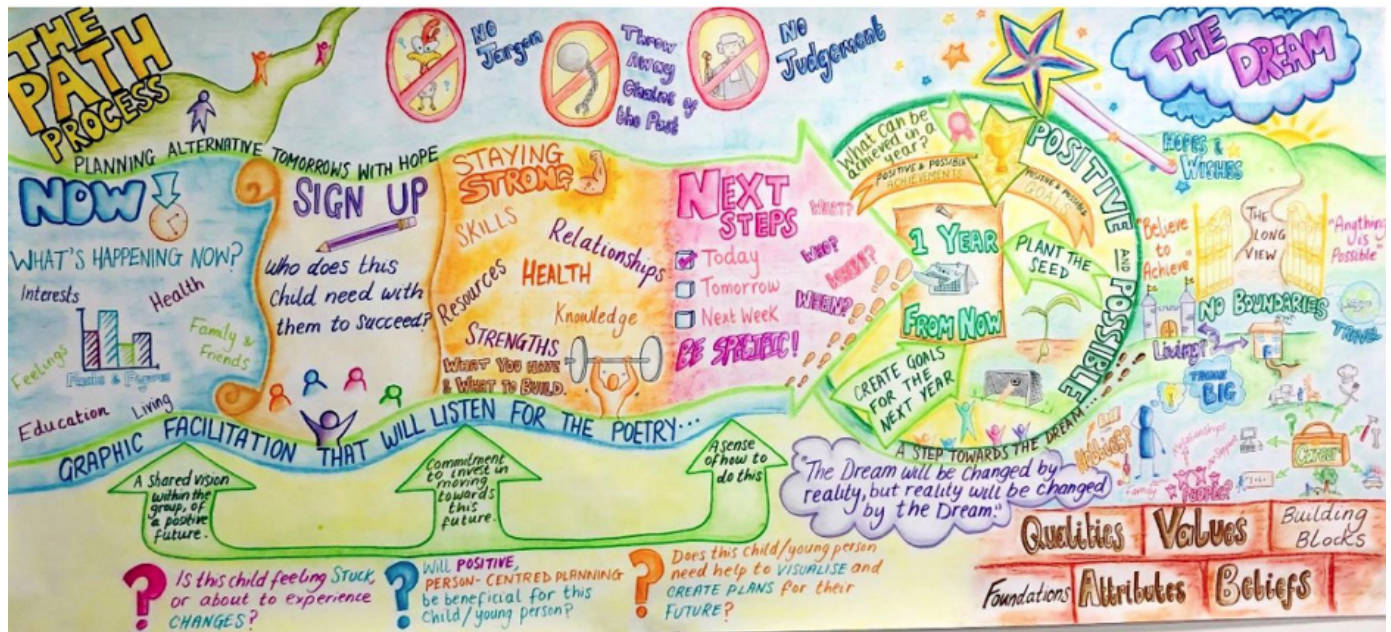 THE
PATH
PROCESS
PLANNING ALTERNATIVE TOMORROWS WITH HOPE
No
Jargon
Throw
Away
Chains of
the Past
No
Judgement
THE
DREAM
NOW
WHAT'S HAPPENING NOW?
Interests
Health
Feelings
Family &
Friends
Facts & Figures
Education
Living
SIGN UP
Who does this
child need with
them to succeed?
STAYING
STRONG
SKILLS
Relationships
Resources
HEALTH
Knowledge
STRENGTHS
WHAT YOU HAVE
& WHAT TO BUILD.
NEXT
STEPS
Today
Tomorrow
Next Week
BE SPECIFIC!
WHAT?
WHO?
WHERE?
WHEN?
What can be
achieved in a
year?
POSITIVE & POSSIBLE
ACHIEVEMENTS
POSITIVE & POSSIBLE
GOALS
1 YEAR
FROM NOW
PLANT THE
SEED
CREATE GOALS
FOR THE
NEXT YEAR
POSITIVE AND POSSIBLE
A STEP TOWARDS THE DREAM...
HOPES &
WISHES
"Believe
to
Achieve"
THE
LONG
VIEW
"Anything
is
Possible"
NO BOUNDARIES
Living?
TRAVEL
THINK
BIG
HOBBIES?
Relationships
Support
Family
PEOPLE?
Career
GRAPHIC FACILITATION THAT WILL LISTEN FOR THE POETRY...
A shared vision
within the
group, of
a positive
future.
Commitment
to invest in
moving
towards
this
future.
A sense
of how to
do this
"The Dream will be changed by
reality, but reality will be changed
by the Dream."
Qualities
Values
Building
Blocks
Foundations
Attributes
Beliefs
? Is this child feeling STUCK,
or about to experience
CHANGES?
? Will POSITIVE,
PERSON-CENTRED PLANNING
be beneficial for this
Child/young person?
? Does this child/young person
need help to VISUALISE and
CREATE PLANS for their
FUTURE?